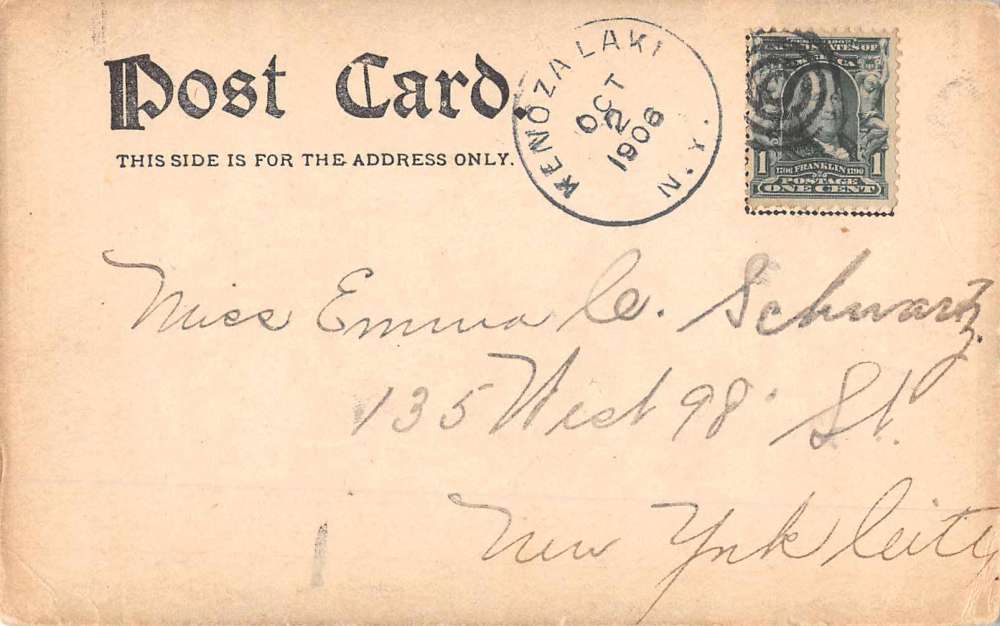 Post Card.
THIS SIDE IS FOR THE ADDRESS ONLY.
KENOZA LAKE N.Y.
OCT
2
1906
STATES OF
AMERICA
1 1706 FRANKLIN 1790 1
POSTAGE
ONE CENT
Miss Emma C. Schwartz
135 West 98 St.
New York City